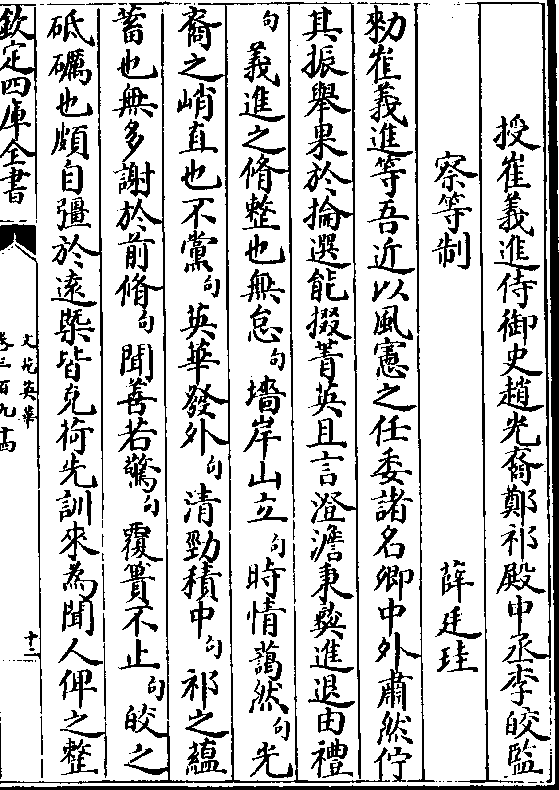 授崔義進侍御史趙光裔鄭祁殿中丞李皎監
察等制
薛廷珪
勑崔義進等吾近以風憲之任委諸名卿中外肅然佇
其振舉果於掄選能掇菁英且言澄澹秉彝進退由禮
句義進之脩整也無怠句墻岸山立句時情藹然句光
裔之峭直也不黨句英華發外句清勁積中句祁之蘊
蓄也無多謝於前脩句聞善若驚句覆簣不止句皎之
砥礪也頗自彊於遠槩皆克荷先訓來為聞人俾之整
欽定四庫全書
文苑英華
卷三百九十四
十二